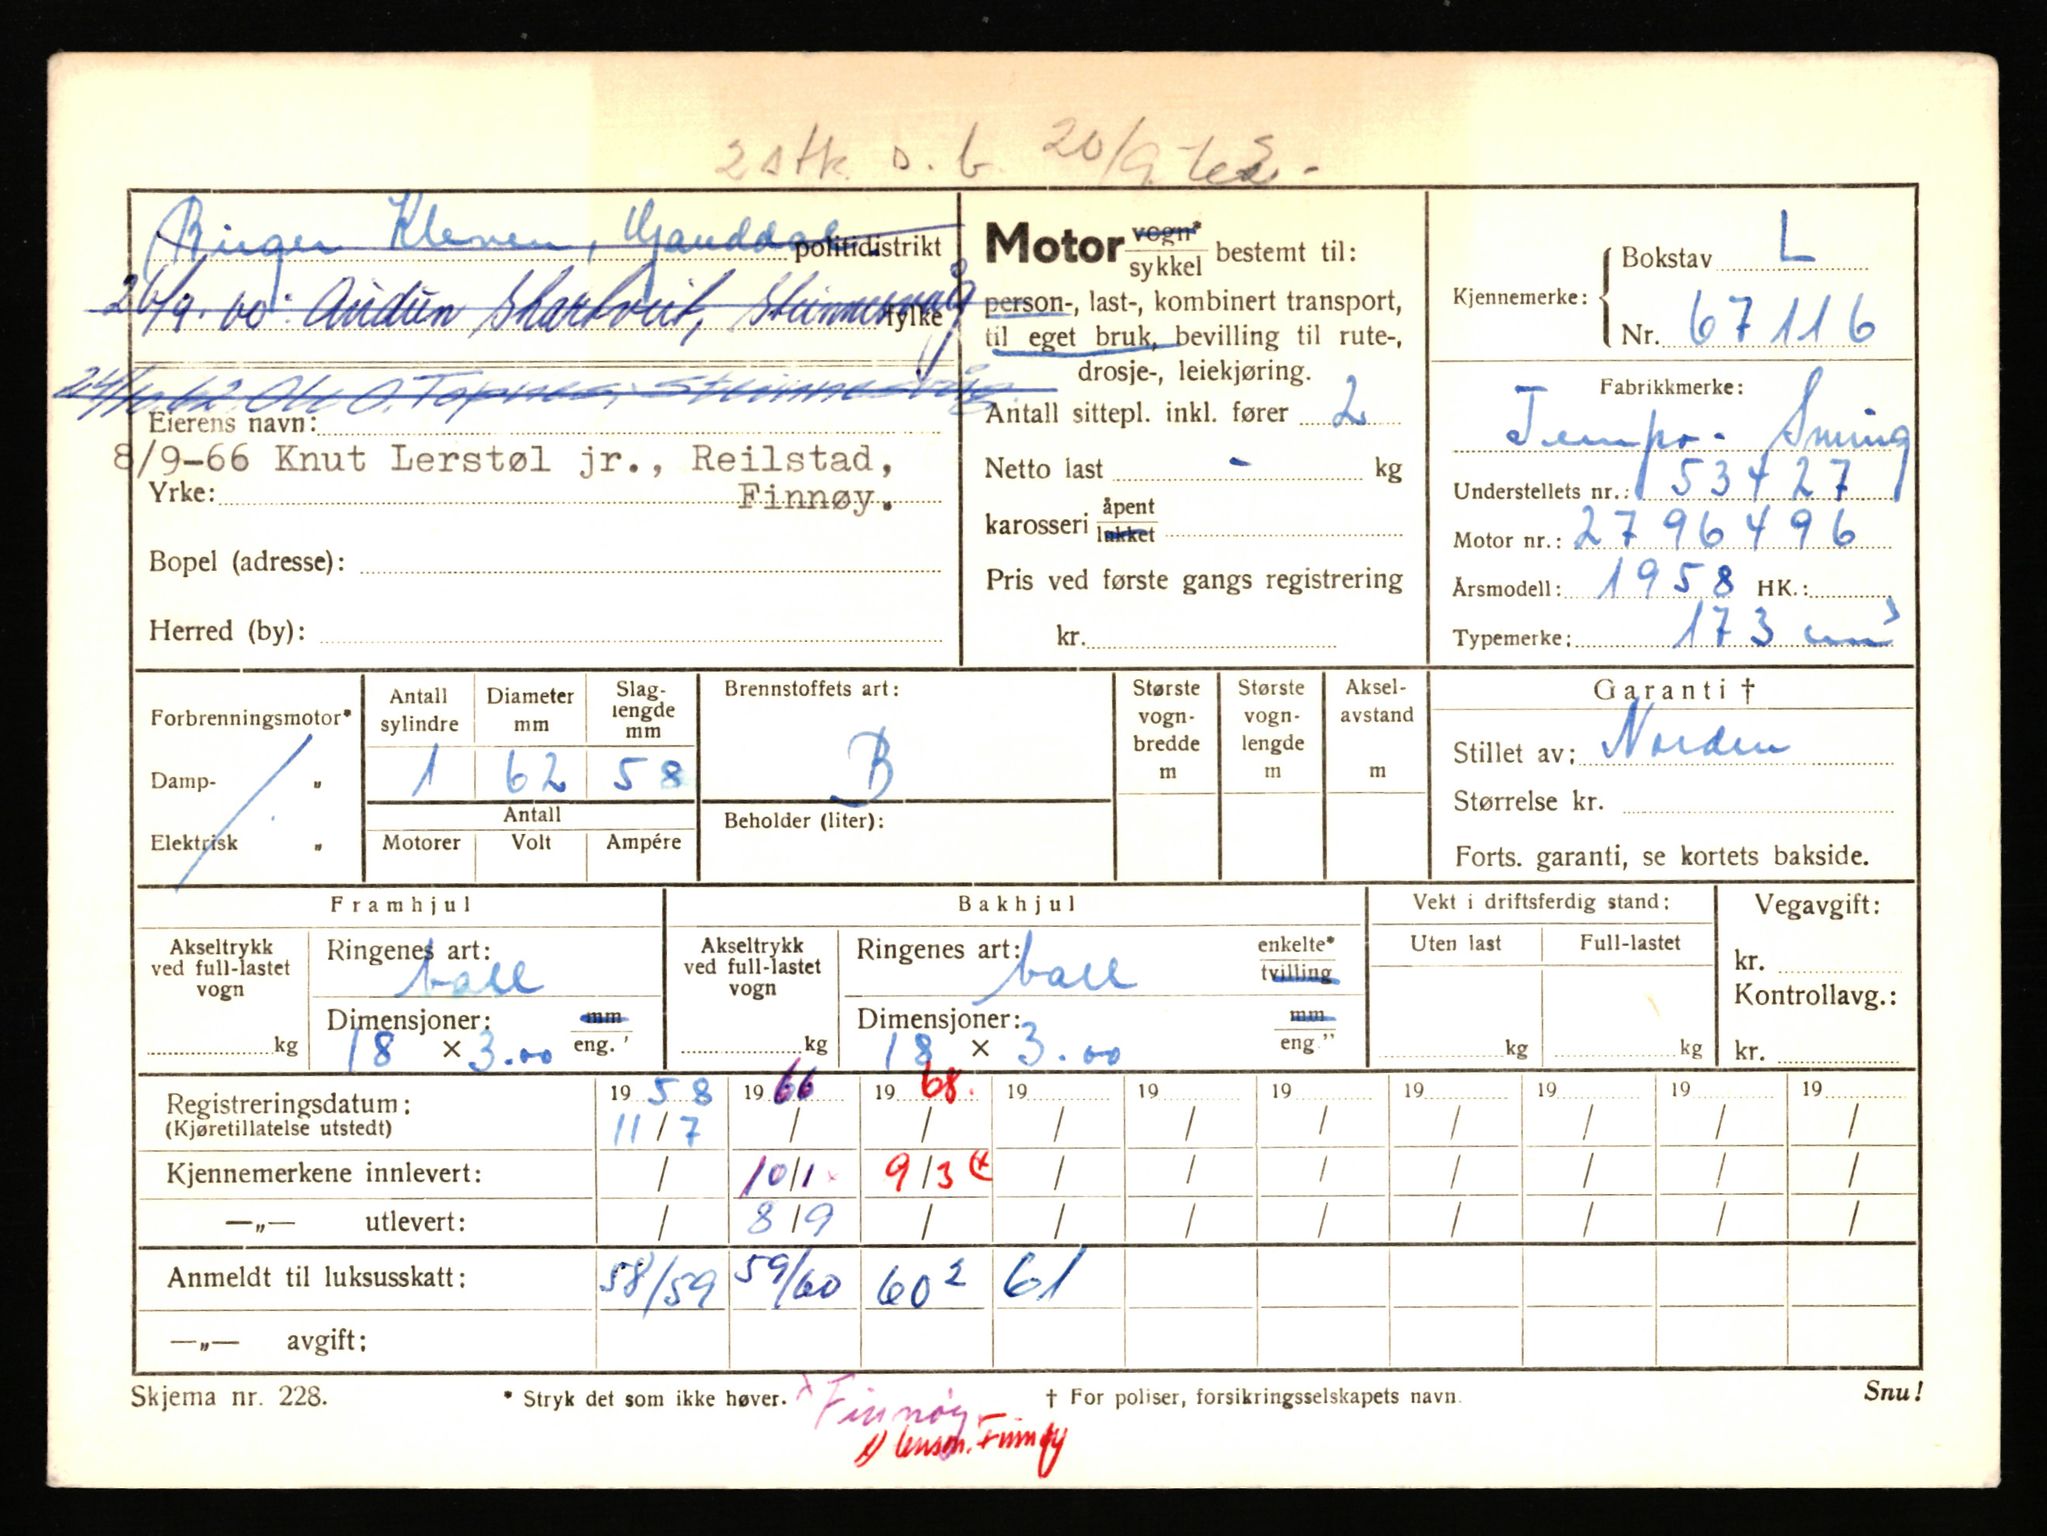 2 stk. s. b. 20/9.
Birger Kleven, Ganddal
politidistrikt
26/9.60: Audun Skartveit, Steinnesvåg
fylke
62. Ole O. Tapnes, Steinnesvåg.
Eierens navn:
8/9-66 Knut Lerstøl jr., Reilstad,
Yrke: Finnøy.
Bopel (adresse):
Herred (by):
Motor vogn* sykkel bestemt til:
person-, last-, kombinert transport,
til eget bruk, bevilling til rute-,
drosje-, leiekjøring.
Antall sittepl. inkl. fører 2
Netto last - kg
karosseri åpent lukket
Pris ved første gangs registrering
kr.
Kjennemerke: Bokstav L
Nr. 67116
Fabrikkmerke:
Tempo-
Understellets nr.: 153427
Motor nr.: 2796496
Årsmodell: 1958 HK.:
Typemerke: 173 cm³
Forbrenningsmotor*
Damp- "
Elektrisk "
Antall sylindre Diameter mm Slag-lengde mm
1 62 58
Antall
Motorer Volt Ampére
Brennstoffets art:
B
Beholder (liter):
Største vogn-bredde m
Største vogn-lengde m
Aksel-avstand m
Garanti †
Stillet av: Norden
Størrelse kr.
Forts. garanti, se kortets bakside.
Framhjul
Akseltrykk ved full-lastet vogn kg
Ringenes art: ball
Dimensjoner: mm
18 × 3.00 eng. '
Bakhjul
Akseltrykk ved full-lastet vogn kg
Ringenes art: ball enkelte* tvilling
Dimensjoner: mm
18 × 3.00 eng "
Vekt i driftsferdig stand:
Uten last Full-lastet
kg kg
Vegavgift:
kr.
Kontrollavg.:
kr.
Registreringsdatum: 1958 1966 1968. 19 19 19 19 19 19 19
(Kjøretillatelse utstedt) 11/7 / / / / / / / / /
Kjennemerkene innlevert: / 10/1 x 9/3 / / / / / / /
—"— utlevert: / 8/9 / / / / / / / /
Anmeldt til luksusskatt: 58/59 59/60 60² 61
—"— avgift:
Skjema nr. 228. * Stryk det som ikke høver. x Finnøy † For poliser, forsikringsselskapets navn. Snu!
lensm. Finnøy